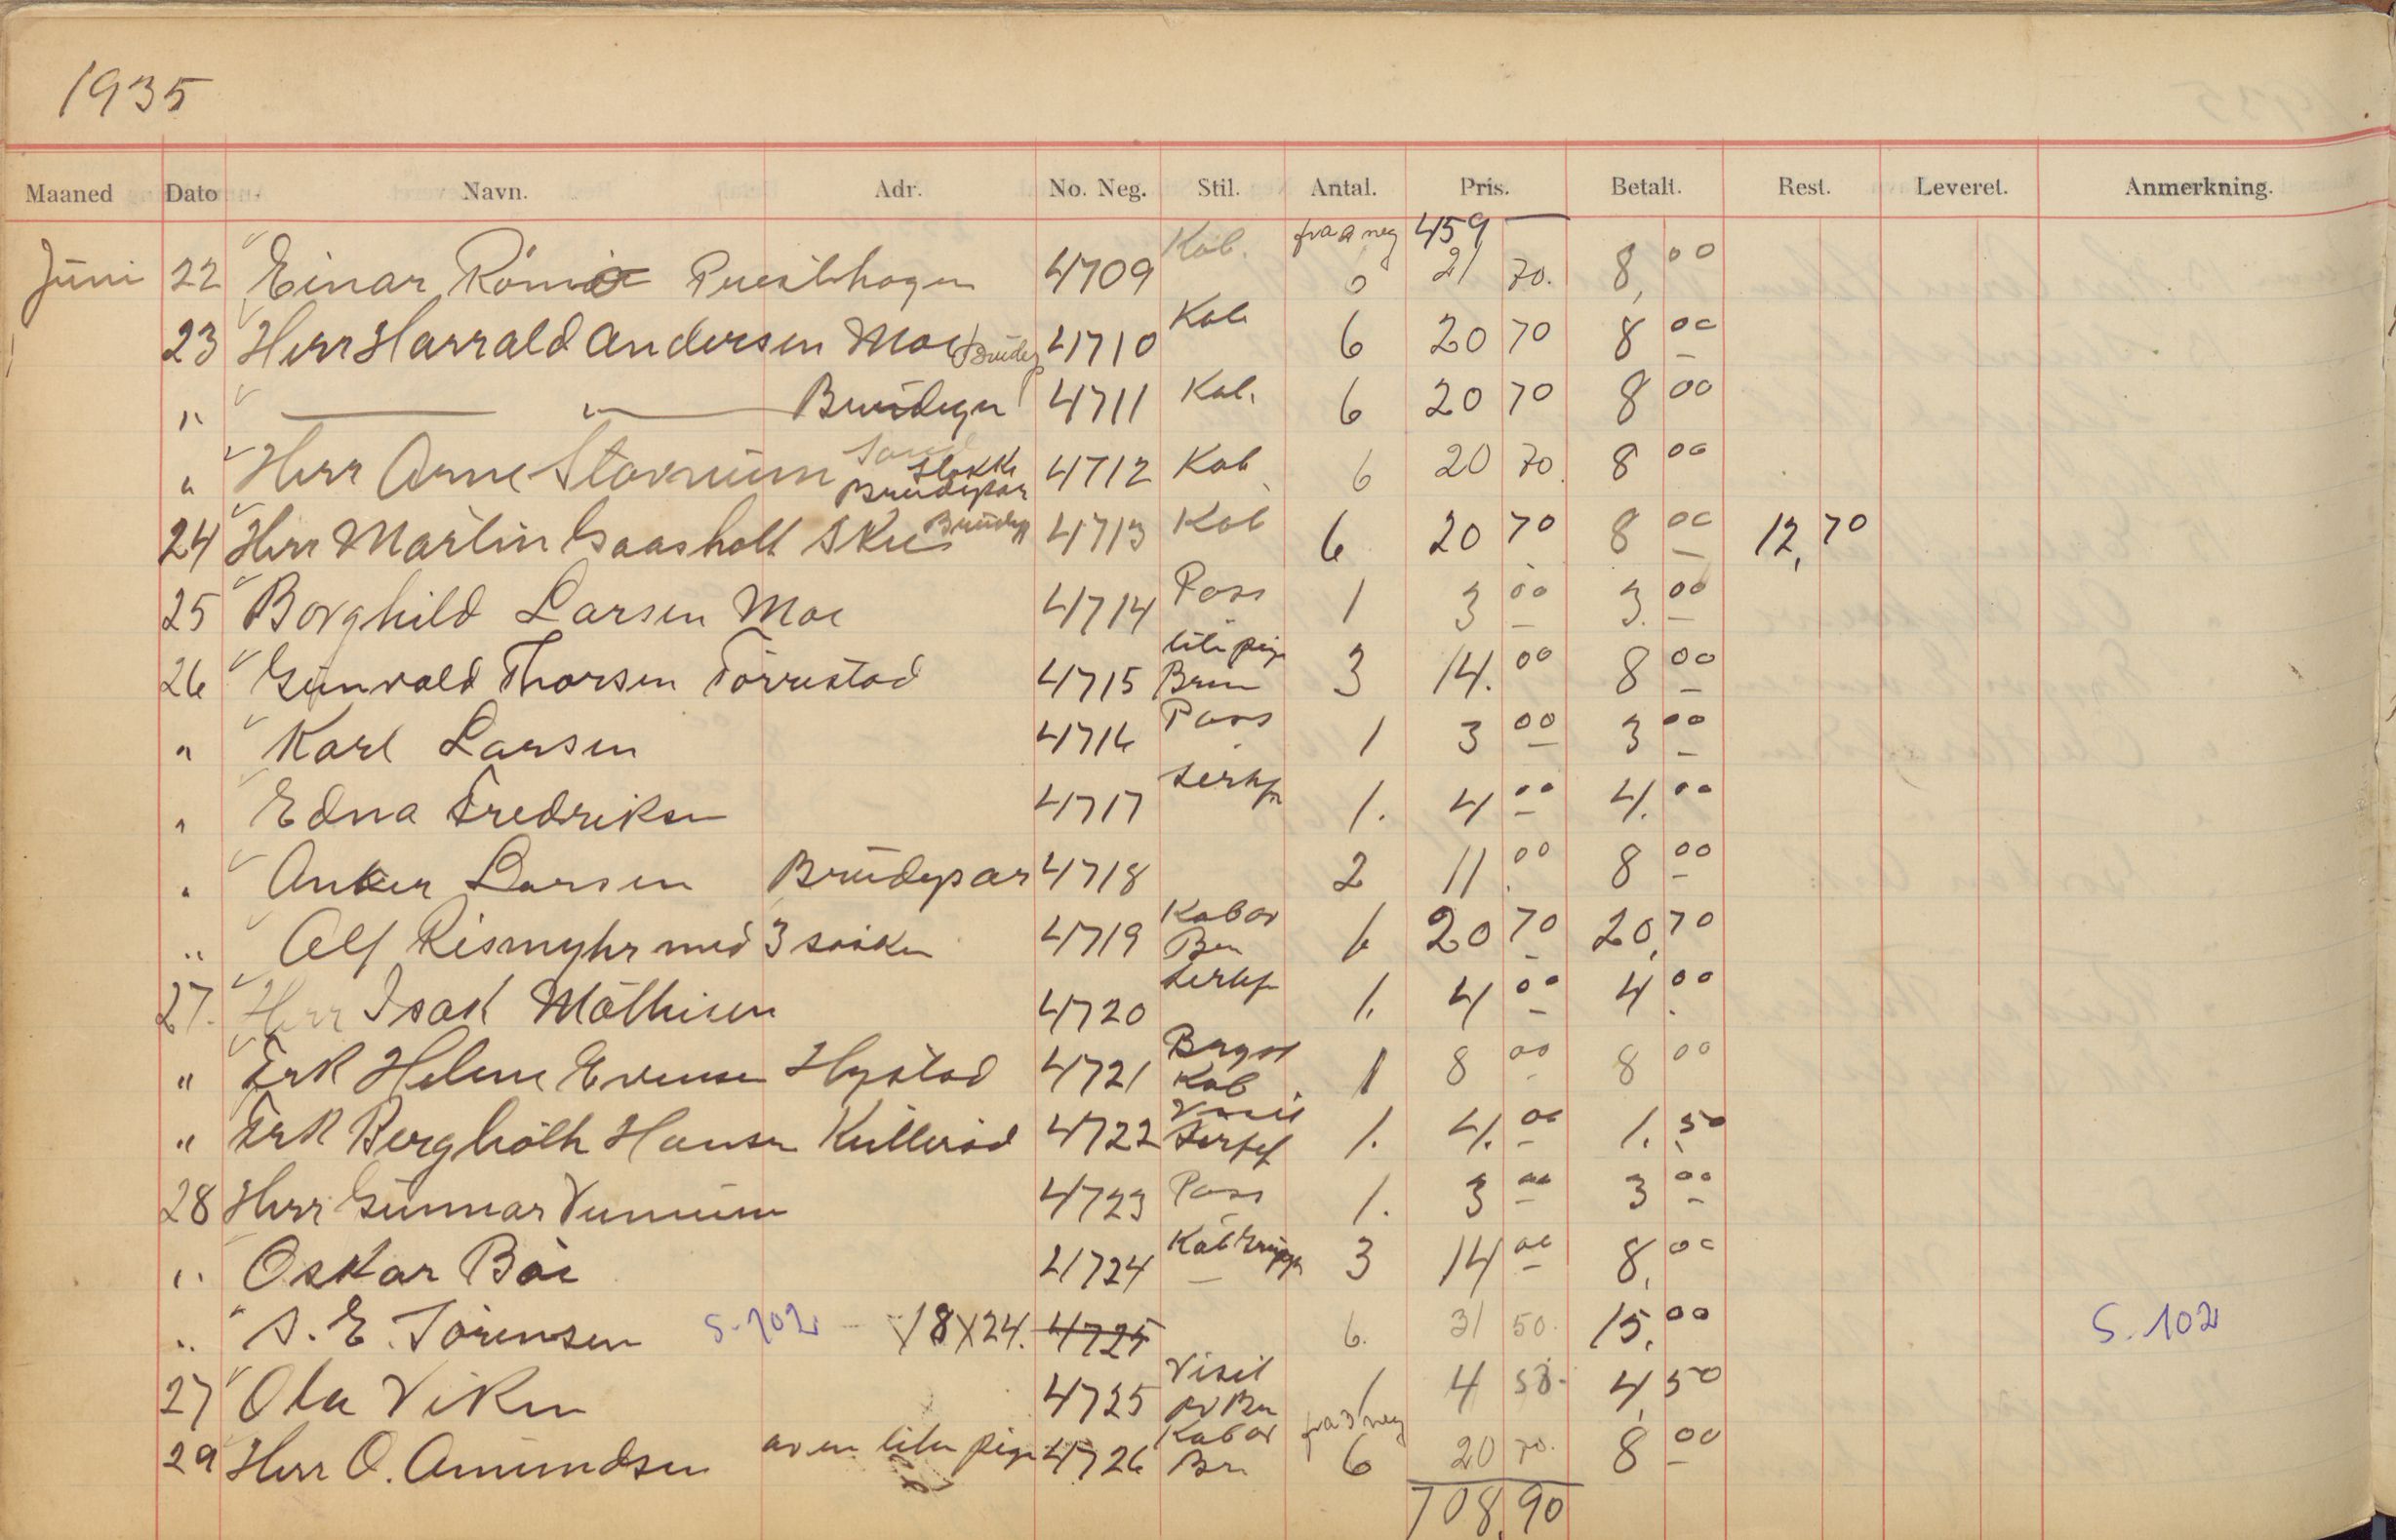 1935
Maaned Dato Navn. Adr. No. Neg. Stil. Antal. Pris. Betalt. Rest. Leveret. Anmerkning.
fra a neg 459 —
Juni 22 Einar 4709 Kab. 6 21 70. 8,00
23 Herr Harrald Andersen Moe Brudep 4710 Kab 6 20 70 8 00
" — " — Brudepar 4711 Kab. 6 20 70 8 00
" Herr Arne Stavnum Slokke Brudepar 4712 Kab 6 20 70 8 00
24 Herr Martin Gaasholt Skee Brudep 4713 Kab 6 20 70 8 00 12,70
25 Borghild Larsen Moe 4714 Pass 1 3 00 3.00
26 Gunvald Thorsen Törrestad 4715 lite pige Brun 3 14.00 8 00
" Karl Larsen 4716 Pass 1 3 00 3 00
" Edna Fredriksen 4717 1. 4 00 4.00
" Anker Larsen Brudepar 4718 2 11.00 8 00
" Alf Rismyhr med 3 söskn 4719 Kab av Brn 6 20 70 20,70
27. Herr Isak Mathisen 4720 1. 4 00 4.00
" Frk Helene Evensen Hystad 4721 Bryst Kab 1 8 00 8 00
" Frk Bergliöth Hansen Kulleröd 4722 Visit 1. 4.00 1.50
28 Herr Gunnar 4723 Pass 1. 3 00 3 00
" Oskar Böe 4724 Kab Gruppe 3 14 00 8,00
" S. E. Sörensen S. 102 18X24. 4725 6. 31 50. 15,00 S. 102
27 Ola Viken 4725 Visit av Brn 1 4 50. 4,50
29 Herr O. Amundsen av en liten pige 4726 Kab av Brn fra 3 neg 6 20 70. 8 00
708,90